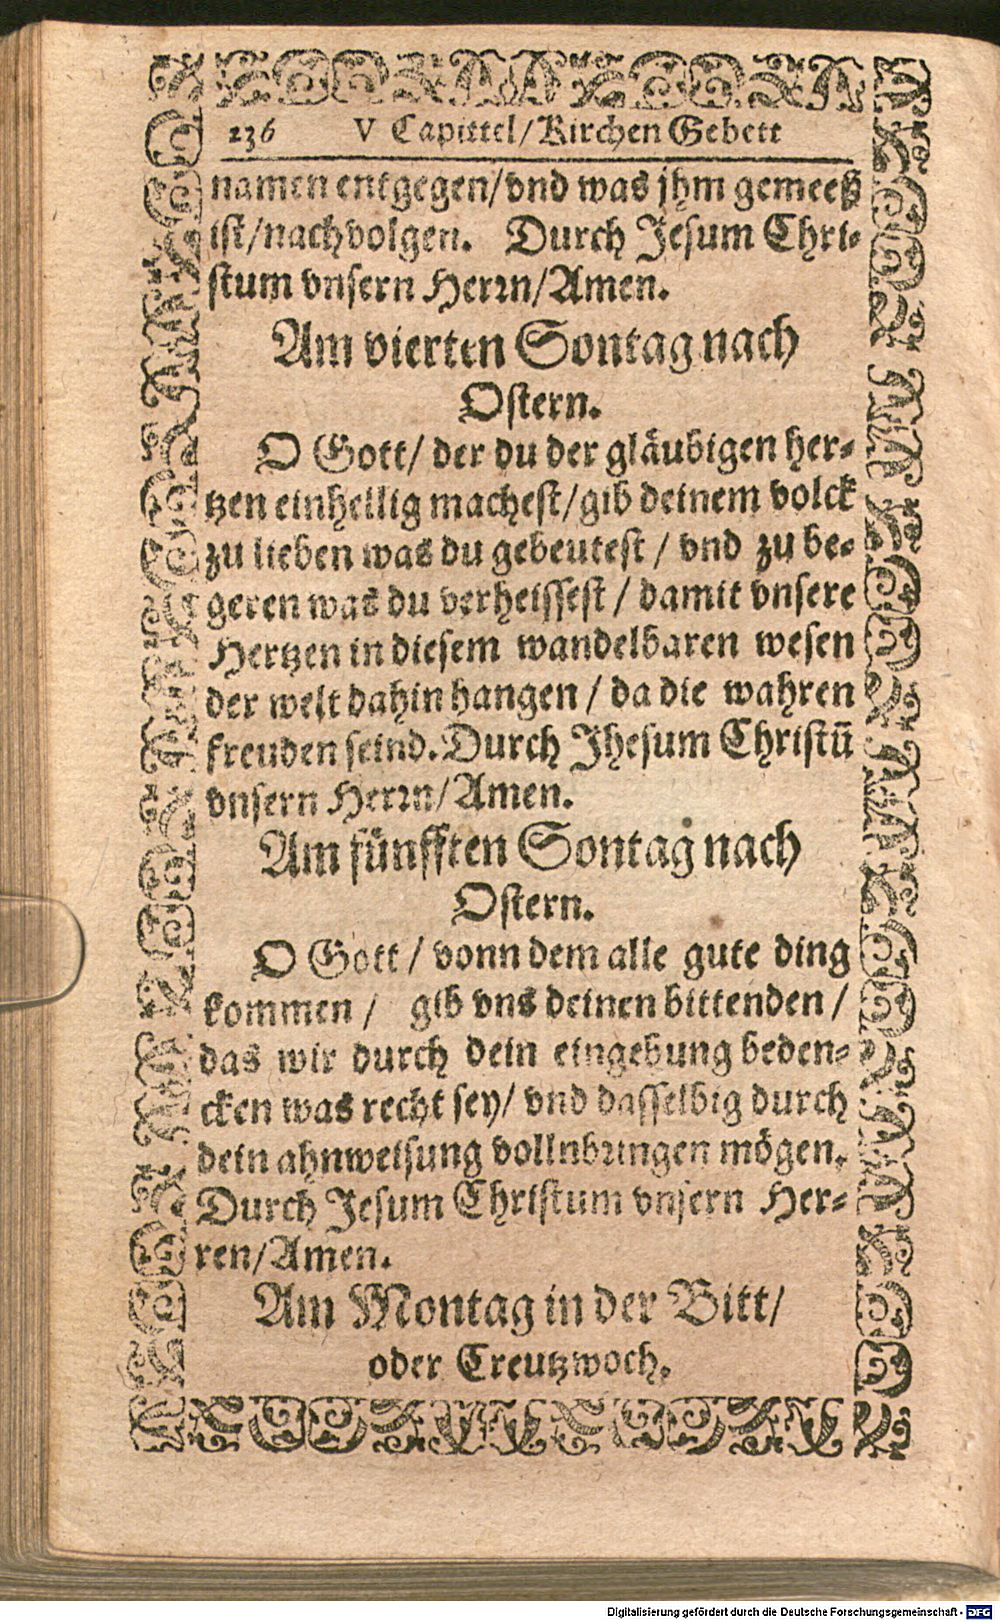 236 V Capittel/Kirchen Gebett
namen entgegen/vnd was jhm gemeeß
ist/nachvolgen. Durch Jesum Chri-
stum vnsern Herrn/Amen.
Am vierten Sontag nach
Ostern.
O Gott/ der du der gläubigen her-
tzen einhellig machest/gib deinem volck
zu lieben was du gebeutest / vnd zu be-
geren was du verheissest / damit vnsere
Hertzen in diesem wandelbaren wesen
der welt dahin hangen / da die wahren
freuden seind. Durch Jhesum Christū
vnsern Herrn/Amen.
Am fünfften Sontag nach
Ostern.
O Gott / vonn dem alle gute ding
kommen / gib vns deinen bittenden /
das wir durch dein eingebung beden-
cken was recht sey/ vnd dasselbig durch
dein ahnweisung vollnbringen mögen.
Durch Jesum Christum vnsern Her-
ren/Amen.
Am Montag in der Bitt/
oder Creutzwoch.
Digitalisierung gefördert durch die Deutsche Forschungsgemeinschaft - DFG